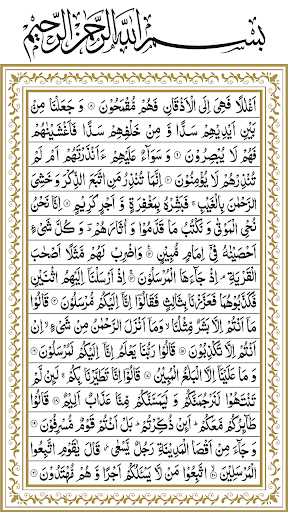 بِسْمِ اللّٰهِ الرَّحْمٰنِ الرَّحِيْمِ
اَغْلٰلًا فَهِىَ اِلَى الْاَذْقَانِ فَهُمْ مُّقْمَحُوْنَ ۞ وَ جَعَلْنَا مِنْۢ
بَيْنِ اَيْدِيْهِمْ سَدًّا وَّ مِنْ خَلْفِهِمْ سَدًّا فَاَغْشَيْنٰهُمْ
فَهُمْ لَا يُبْصِرُوْنَ ۞ وَ سَوَآءٌ عَلَيْهِمْ ءَاَنْذَرْتَهُمْ اَمْ لَمْ
تُنْذِرْهُمْ لَا يُؤْمِنُوْنَ ۞ اِنَّمَا تُنْذِرُ مَنِ اتَّبَعَ الذِّكْرَ وَ خَشِىَ
الرَّحْمٰنَ بِالْغَيْبِ ۚ فَبَشِّرْهُ بِمَغْفِرَةٍ وَّ اَجْرٍ كَرِيْمٍ ۞ اِنَّا نَحْنُ
نُحْىِ الْمَوْتٰى وَ نَكْتُبُ مَا قَدَّمُوْا وَ اٰثَارَهُمْ ؕ وَ كُلَّ شَىْءٍ
اَحْصَيْنٰهُ فِىْۤ اِمَامٍ مُّبِيْنٍ ۞ وَ اضْرِبْ لَهُمْ مَّثَلًا اَصْحٰبَ
الْقَرْيَةِ ۘ اِذْ جَآءَهَا الْمُرْسَلُوْنَ ۞ اِذْ اَرْسَلْنَاۤ اِلَيْهِمُ اثْنَيْنِ
فَكَذَّبُوْهُمَا فَعَزَّزْنَا بِثَالِثٍ فَقَالُوْۤا اِنَّاۤ اِلَيْكُمْ مُّرْسَلُوْنَ ۞ قَالُوْا
مَاۤ اَنْتُمْ اِلَّا بَشَرٌ مِّثْلُنَا ۙ وَ مَاۤ اَنْزَلَ الرَّحْمٰنُ مِنْ شَىْءٍ ۙ اِنْ
اَنْتُمْ اِلَّا تَكْذِبُوْنَ ۞ قَالُوْا رَبُّنَا يَعْلَمُ اِنَّاۤ اِلَيْكُمْ لَمُرْسَلُوْنَ ۞
وَ مَا عَلَيْنَاۤ اِلَّا الْبَلٰغُ الْمُبِيْنُ ۞ قَالُوْۤا اِنَّا تَطَيَّرْنَا بِكُمْ ۚ لَئِنْ لَّمْ
تَنْتَهُوْا لَنَرْجُمَنَّكُمْ وَ لَيَمَسَّنَّكُمْ مِّنَّا عَذَابٌ اَلِيْمٌ ۞ قَالُوْا
طَآئِرُكُمْ مَّعَكُمْ ؕ اَئِنْ ذُكِّرْتُمْ ؕ بَلْ اَنْتُمْ قَوْمٌ مُّسْرِفُوْنَ ۞
وَ جَآءَ مِنْ اَقْصَا الْمَدِيْنَةِ رَجُلٌ يَّسْعٰى ۫ قَالَ يٰقَوْمِ اتَّبِعُوا
الْمُرْسَلِيْنَ ۞ اتَّبِعُوْا مَنْ لَّا يَسْئَلُكُمْ اَجْرًا وَّ هُمْ مُّهْتَدُوْنَ ۞